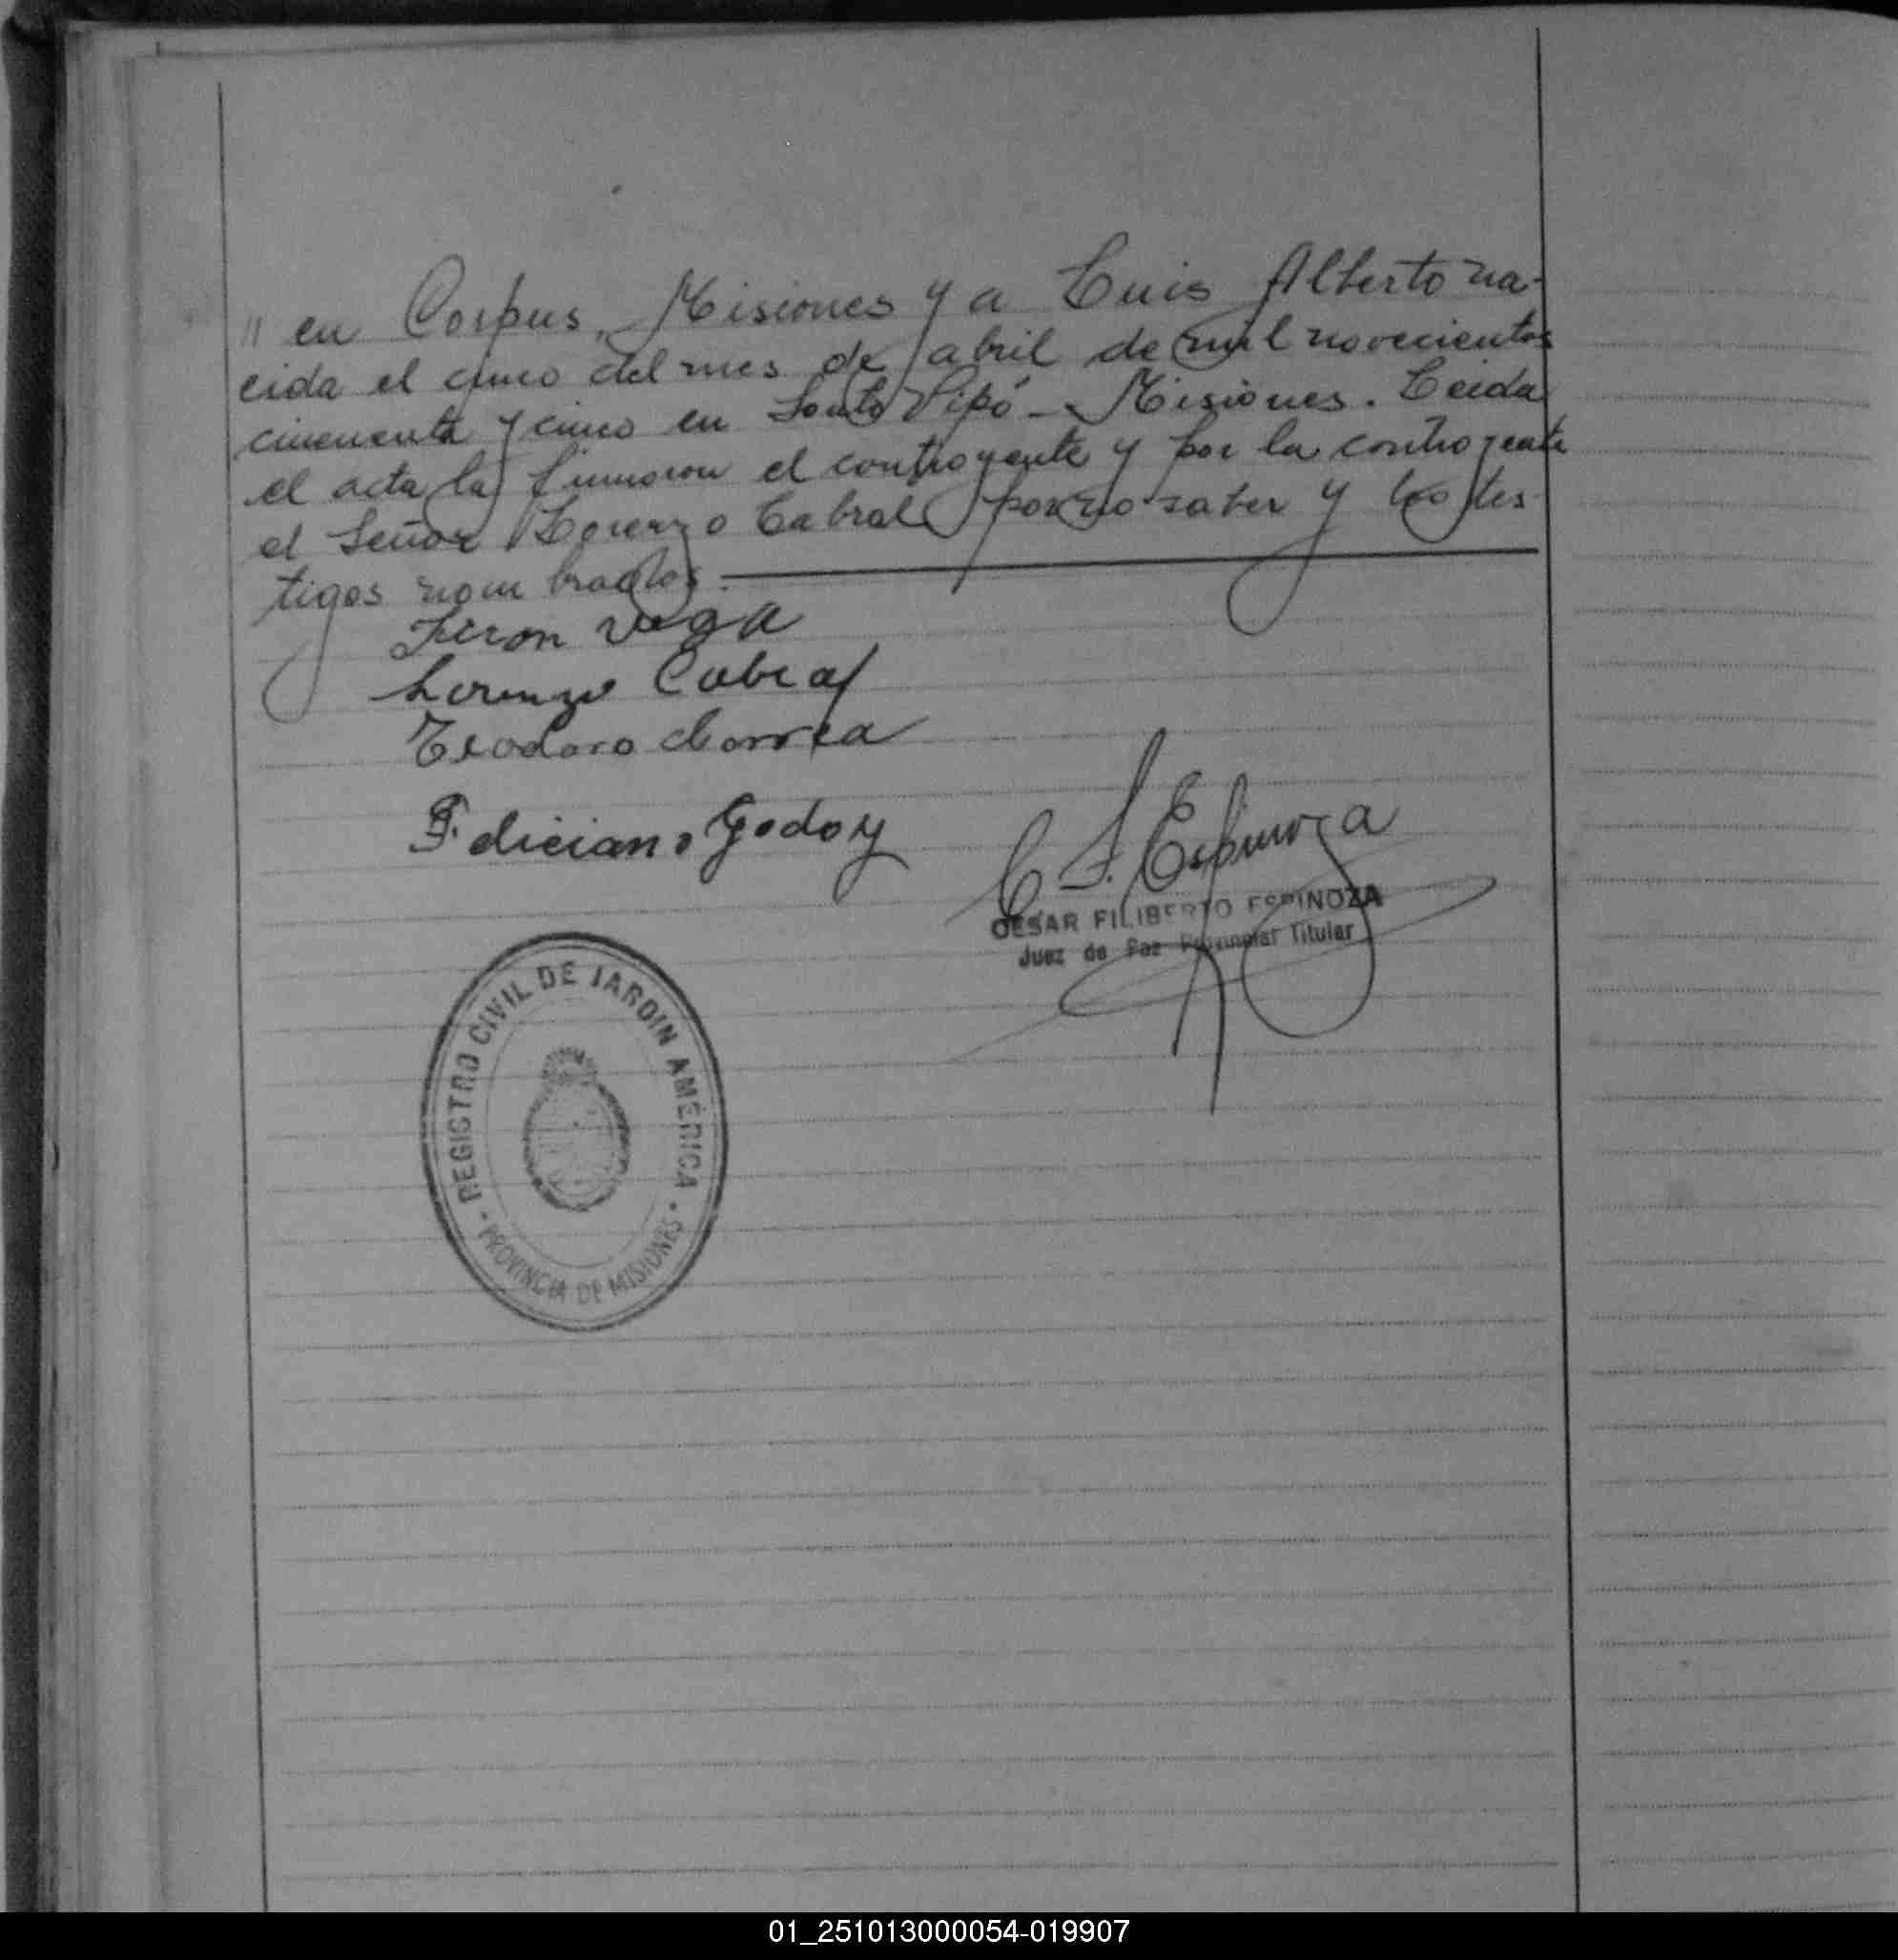 " en Corpus, Misiones y a Luis Alberto na-
cida el cinco del mes de abril de mil novecientos
cincuenta y cinco en Santo Pipó - Misiones. Leida
el acta la firmaron el contrayente y por la contrayente
el Señor Lorenzo Cabral por no saber y los tes
tigos nombrados.
Vega
Lorenzo Cabral
Teodoro Correa
Feliciano Godoy
C F. Espinoza
CESAR FILIBERTO ESPINOZA
Juez de Paz Provincial Titular
REGISTRO CIVIL DE JARDIN AMÉRICA
PROVINCIA DE MISIONES
01_251013000054-019907